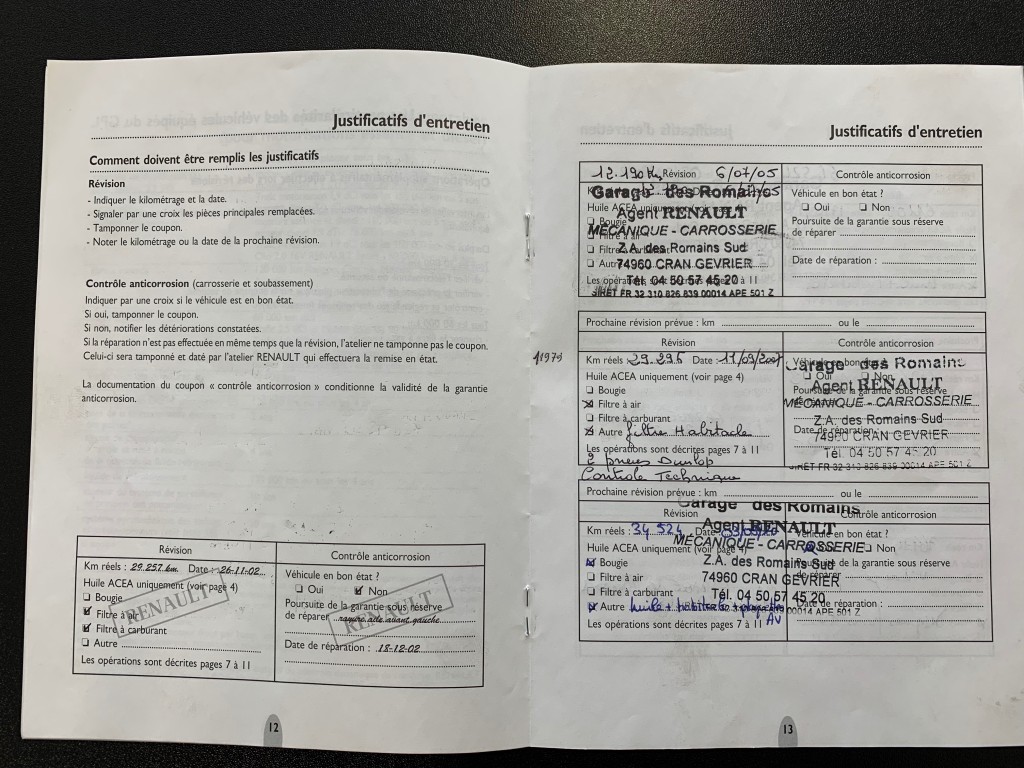 Justificatifs d'entretien
Comment doivent être remplis les justificatifs
Révision
- Indiquer le kilométrage et la date.
- Signaler par une croix les pièces principales remplacées.
- Tamponner le coupon.
- Noter le kilométrage ou la date de la prochaine révision.
Contrôle anticorrosion (carrosserie et soubassement)
Indiquer par une croix si le véhicule est en bon état.
Si oui, tamponner le coupon.
Si non, notifier les détériorations constatées.
Si la réparation n'est pas effectuée en même temps que la révision, l'atelier ne tamponne pas le coupon.
Celui-ci sera tamponné et daté par l'atelier RENAULT qui effectuera la remise en état.
La documentation du coupon « contrôle anticorrosion » conditionne la validité de la garantie
anticorrosion.
Révision
Km réels : 29.257 km. Date : 26-11-02
Huile ACEA uniquement (voir page 4)
Bougie
Filtre à air
Filtre à carburant
Autre
Les opérations sont décrites pages 7 à 11
RENAULT
Contrôle anticorrosion
Véhicule en bon état ?
Oui Non
Poursuite de la garantie sous réserve
de réparer rayure aile avant gauche
Date de réparation : 18-12-02
RENAULT
12
Justificatifs d'entretien
12.190 Km Révision 6/07/05
Garage des Romains
Agent RENAULT
MÉCANIQUE - CARROSSERIE
Z.A. des Romains Sud
74960 CRAN GEVRIER
Tél. 04 50 57 45 20
SIRET FR 32 310 826 839 00014 APE 501 Z
Huile ACEA uniquement
Bougie
Filtre à air
Autre
Les opérations
Contrôle anticorrosion
Véhicule en bon état ?
Oui Non
Poursuite de la garantie sous réserve
de réparer
Date de réparation :
Prochaine révision prévue : km ou le
Révision
Km réels : 29.296 Date : 11/09/2007
Huile ACEA uniquement (voir page 4)
Bougie
Filtre à air
Filtre à carburant
Autre filtre Habitacle
Les opérations sont décrites pages 7 à 11
2 pneus Dunlop
Controle Technique
Véhicule en bon état ?
Oui Non
Garage des Romains
Agent RENAULT
MÉCANIQUE - CARROSSERIE
Z.A. des Romains Sud
74960 CRAN GEVRIER
Tél. 04 50 57 45 20
SIRET FR 32 310 826 839 00014 APE 501 Z
Prochaine révision prévue : km ou le
Révision
Km réels : 34.524 Date
Huile ACEA uniquement (voir page 4)
Bougie
Filtre à air
Filtre à carburant
Autre huile + habitacle + plaquette
AV
Les opérations sont décrites pages 7 à 11
Contrôle anticorrosion
Véhicule en bon état ?
Non
Garage des Romains
Agent RENAULT
MÉCANIQUE - CARROSSERIE
Z.A. des Romains Sud
74960 CRAN GEVRIER
Tél. 04 50 57 45 20
00014 APE 501 Z
Date de réparation :
13